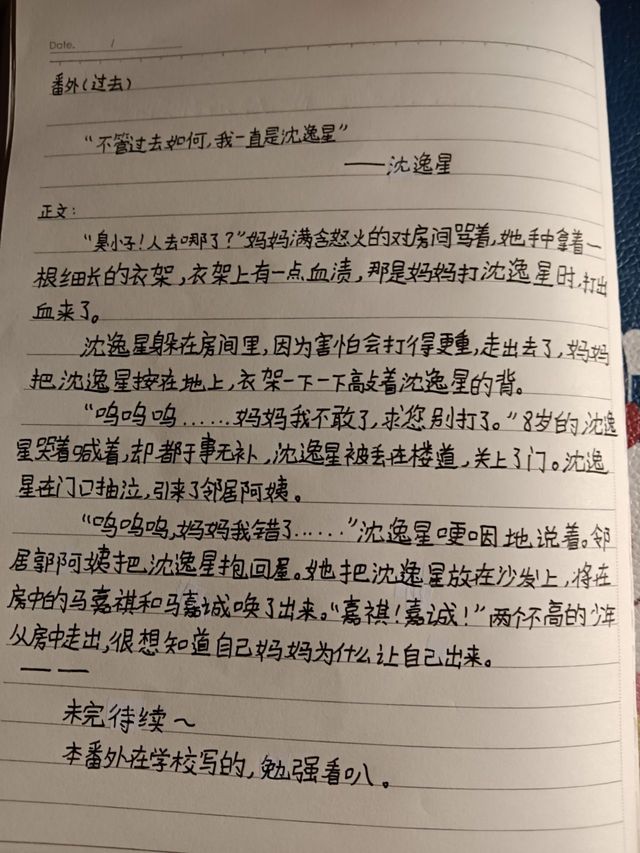 Date. /
番外(过去)
“不管过去如何,我一直是沈逸星”
——沈逸星
正文:
“臭小子!人去哪了?”妈妈满含怒火的对房间骂着,她手中拿着一
根细长的衣架,衣架上有一点血渍,那是妈妈打沈逸星时,打出
血来了。
沈逸星躲在房间里,因为害怕会打得更重,走出去了,妈妈
把沈逸星按在地上,衣架一下一下敲着沈逸星的背。
“呜呜呜……妈妈我不敢了,求您别打了。”8岁的沈逸
星哭着喊着,却都于事无补,沈逸星被丢在楼道,关上了门。沈逸
星在门口抽泣,引来了邻居阿姨。
“呜呜呜,妈妈我错了……”沈逸星哽咽地说着。邻
居郭阿姨把沈逸星抱回屋。她把沈逸星放在沙发上,将在
房中的马嘉祺和马嘉诚唤了出来。“嘉祺!嘉诚!”两个不高的少年
从房中走出,很想知道自己妈妈为什么让自己出来。
——
未完待续~
本番外在学校写的,勉强看叭。